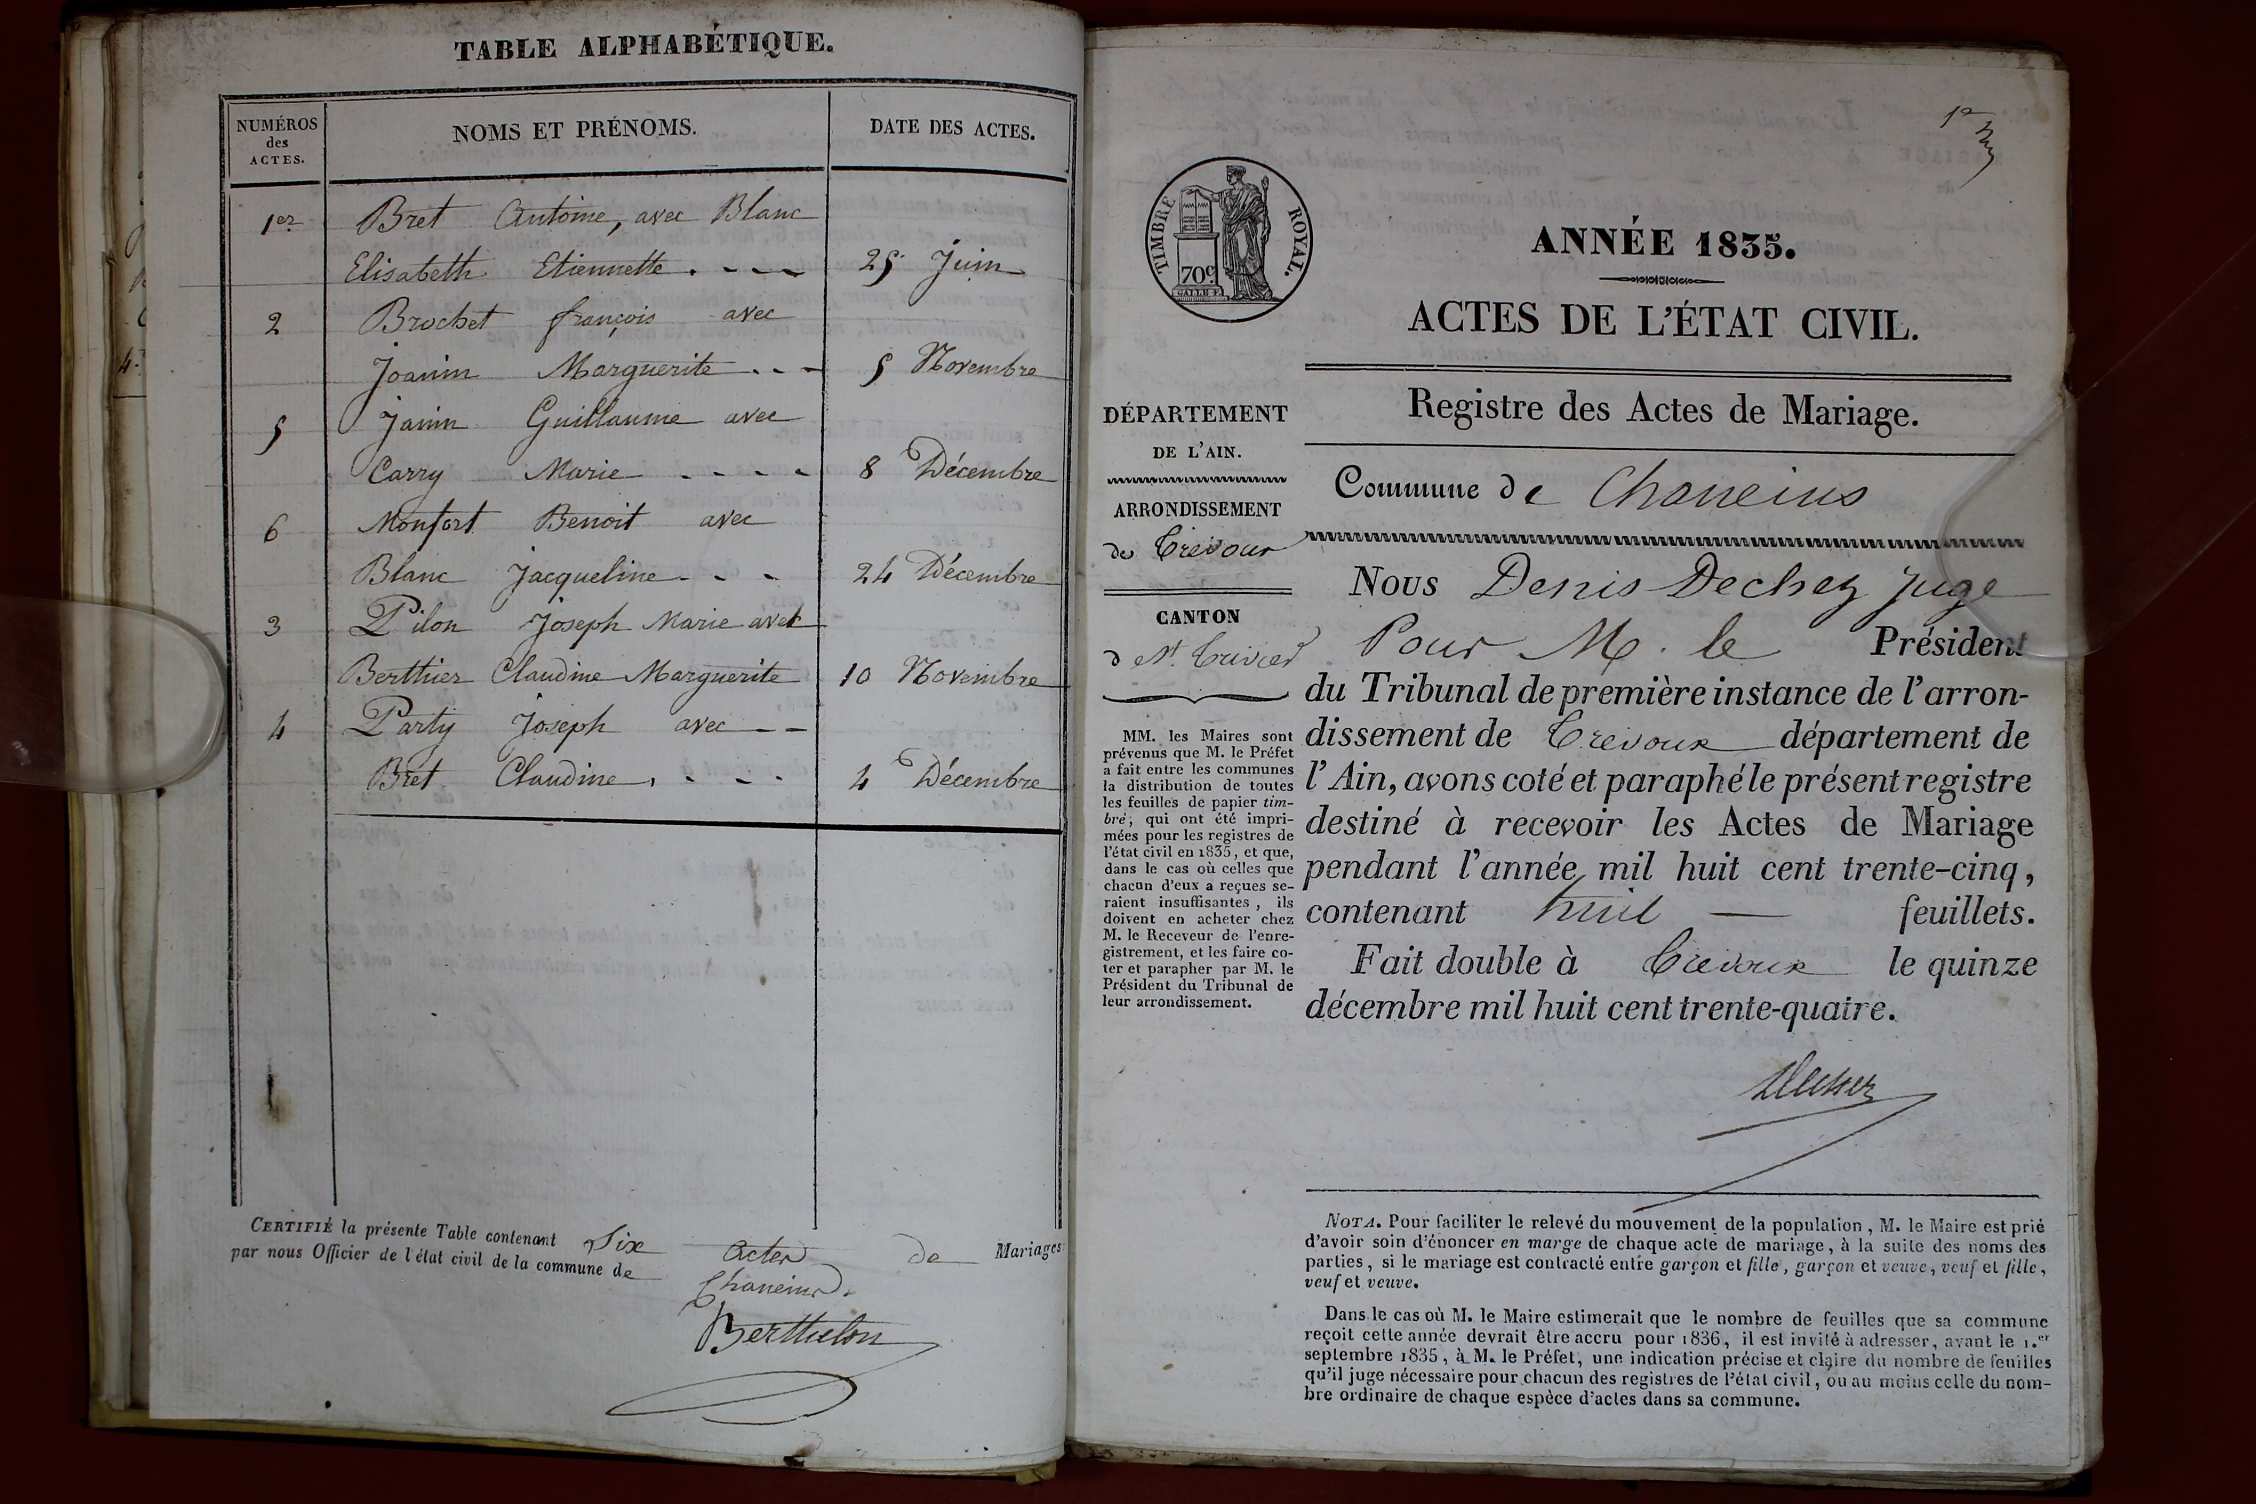 TABLE ALPHABÉTIQUE.
NUMÉROS des ACTES. NOMS ET PRÉNOMS. DATE DES ACTES.
1er Bret Antoine, avec Blanc
Elisabeth Etiennette . - - - 25 Juin
2 Brochet françois avec
Joanin Marguerite . - - 5 Novembre
5 Janin Guillaume avec
Carry Marie - - - - 8 Décembre
6 Monfort Benoit avec
Blanc Jacqueline - - - 24 Décembre
3 Pilon Joseph Marie avec
Berthier Claudine Marguerite 10 Novembre
4 Party Joseph avec - -
Bret Claudine . - - - 4 Décembre
CERTIFIÉ la présente Table contenant Six actes de Mariages
par nous Officier de l'état civil de la commune de Chaneins.
Berthelon
1er
TIMBRE ROYAL.
70c
ANNÉE 1835.
ACTES DE L'ÉTAT CIVIL.
Registre des Actes de Mariage.
DÉPARTEMENT
DE L'AIN.
ARRONDISSEMENT
de Trévoux
CANTON
de St. Trivier
MM. les Maires sont
prévenus que M. le Préfet
a fait entre les communes
la distribution de toutes
les feuilles de papier tim-
bré, qui ont été impri-
mées pour les registres de
l'état civil en 1835, et que,
dans le cas où celles que
chacun d'eux a reçues se-
raient insuffisantes, ils
doivent en acheter chez
M. le Receveur de l'enre-
gistrement, et les faire co-
ter et parapher par M. le
Président du Tribunal de
leur arrondissement.
Commune de Chaneins
Nous Denis Dechez Juge
Pour M. le Président
du Tribunal de première instance de l'arron-
dissement de Trevoux département de
l'Ain, avons coté et paraphé le présent registre
destiné à recevoir les Actes de Mariage
pendant l'année mil huit cent trente-cinq,
contenant huit — feuillets.
Fait double à Trevoux le quinze
décembre mil huit cent trente-quatre.
NOTA. Pour faciliter le relevé du mouvement de la population, M. le Maire est prié
d'avoir soin d'énoncer en marge de chaque acte de mariage, à la suite des noms des
parties, si le mariage est contracté entre garçon et fille, garçon et veuve, veuf et fille,
veuf et veuve.
Dans le cas où M. le Maire estimerait que le nombre de feuilles que sa commune
reçoit cette année devrait être accru pour 1836, il est invité à adresser, avant le 1.er
septembre 1835, à M. le Préfet, une indication précise et claire du nombre de feuilles
qu'il juge nécessaire pour chacun des registres de l'état civil, ou au moins celle du nom-
bre ordinaire de chaque espèce d'actes dans sa commune.